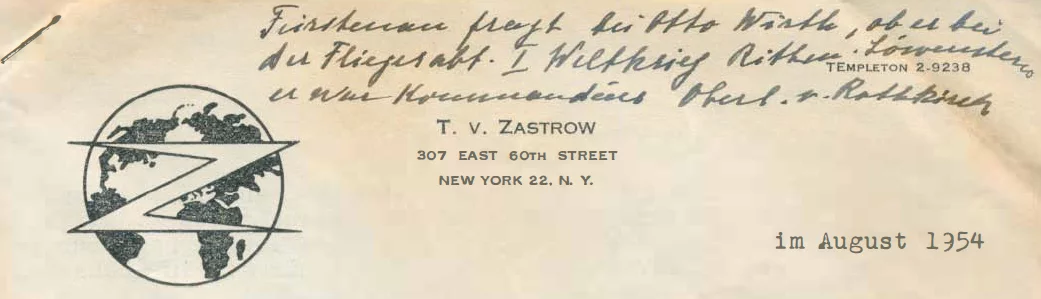 Fürstenau fragt bei Otto Wirth, ob er bei
der Fliegerabt. I Weltkrieg Rittm. Löwenstern
TEMPLETON 2-9238
er war Kommandeur Oberl. v. Rothkirch
T. V. ZASTROW
307 EAST 60TH STREET
NEW YORK 22, N. Y.
im August 1954